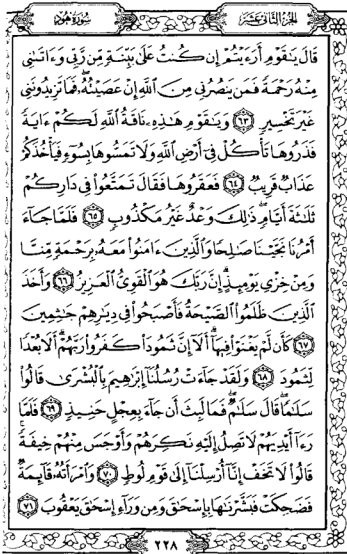 الجزء الثاني عشر
سورة هود
قَالَ يَـٰقَوْمِ أَرَءَيْتُمْ إِن كُنتُ عَلَىٰ بَيِّنَةٍ مِّن رَّبِّى وَءَاتَىٰنِى
مِنْهُ رَحْمَةً فَمَن يَنصُرُنِى مِنَ ٱللَّهِ إِنْ عَصَيْتُهُۥ فَمَا تَزِيدُونَنِى
غَيْرَ تَخْسِيرٍ ٦٣ وَيَـٰقَوْمِ هَـٰذِهِۦ نَاقَةُ ٱللَّهِ لَكُمْ ءَايَةً
فَذَرُوهَا تَأْكُلْ فِىٓ أَرْضِ ٱللَّهِ وَلَا تَمَسُّوهَا بِسُوٓءٍ فَيَأْخُذَكُمْ
عَذَابٌ قَرِيبٌ ٦٤ فَعَقَرُوهَا فَقَالَ تَمَتَّعُوا۟ فِى دَارِكُمْ
ثَلَـٰثَةَ أَيَّامٍ ۖ ذَٰلِكَ وَعْدٌ غَيْرُ مَكْذُوبٍ ٦٥ فَلَمَّا جَآءَ
أَمْرُنَا نَجَّيْنَا صَـٰلِحًا وَٱلَّذِينَ ءَامَنُوا۟ مَعَهُۥ بِرَحْمَةٍ مِّنَّا
وَمِنْ خِزْىِ يَوْمِئِذٍ ۗ إِنَّ رَبَّكَ هُوَ ٱلْقَوِىُّ ٱلْعَزِيزُ ٦٦ وَأَخَذَ
ٱلَّذِينَ ظَلَمُوا۟ ٱلصَّيْحَةُ فَأَصْبَحُوا۟ فِى دِيَـٰرِهِمْ جَـٰثِمِينَ
٦٧ كَأَن لَّمْ يَغْنَوْا۟ فِيهَآ ۗ أَلَآ إِنَّ ثَمُودَا۟ كَفَرُوا۟ رَبَّهُمْ ۗ أَلَا بُعْدًا
لِّثَمُودَ ٦٨ وَلَقَدْ جَآءَتْ رُسُلُنَآ إِبْرَٰهِيمَ بِٱلْبُشْرَىٰ قَالُوا۟
سَلَـٰمًا ۖ قَالَ سَلَـٰمٌ ۖ فَمَا لَبِثَ أَن جَآءَ بِعِجْلٍ حَنِيذٍ ٦٩ فَلَمَّا
رَءَآ أَيْدِيَهُمْ لَا تَصِلُ إِلَيْهِ نَكِرَهُمْ وَأَوْجَسَ مِنْهُمْ خِيفَةً ۚ
قَالُوا۟ لَا تَخَفْ إِنَّآ أُرْسِلْنَآ إِلَىٰ قَوْمِ لُوطٍ ٧٠ وَٱمْرَأَتُهُۥ قَآئِمَةٌ
فَضَحِكَتْ فَبَشَّرْنَـٰهَا بِإِسْحَـٰقَ وَمِن وَرَآءِ إِسْحَـٰقَ يَعْقُوبَ ٧١
٢٢٨